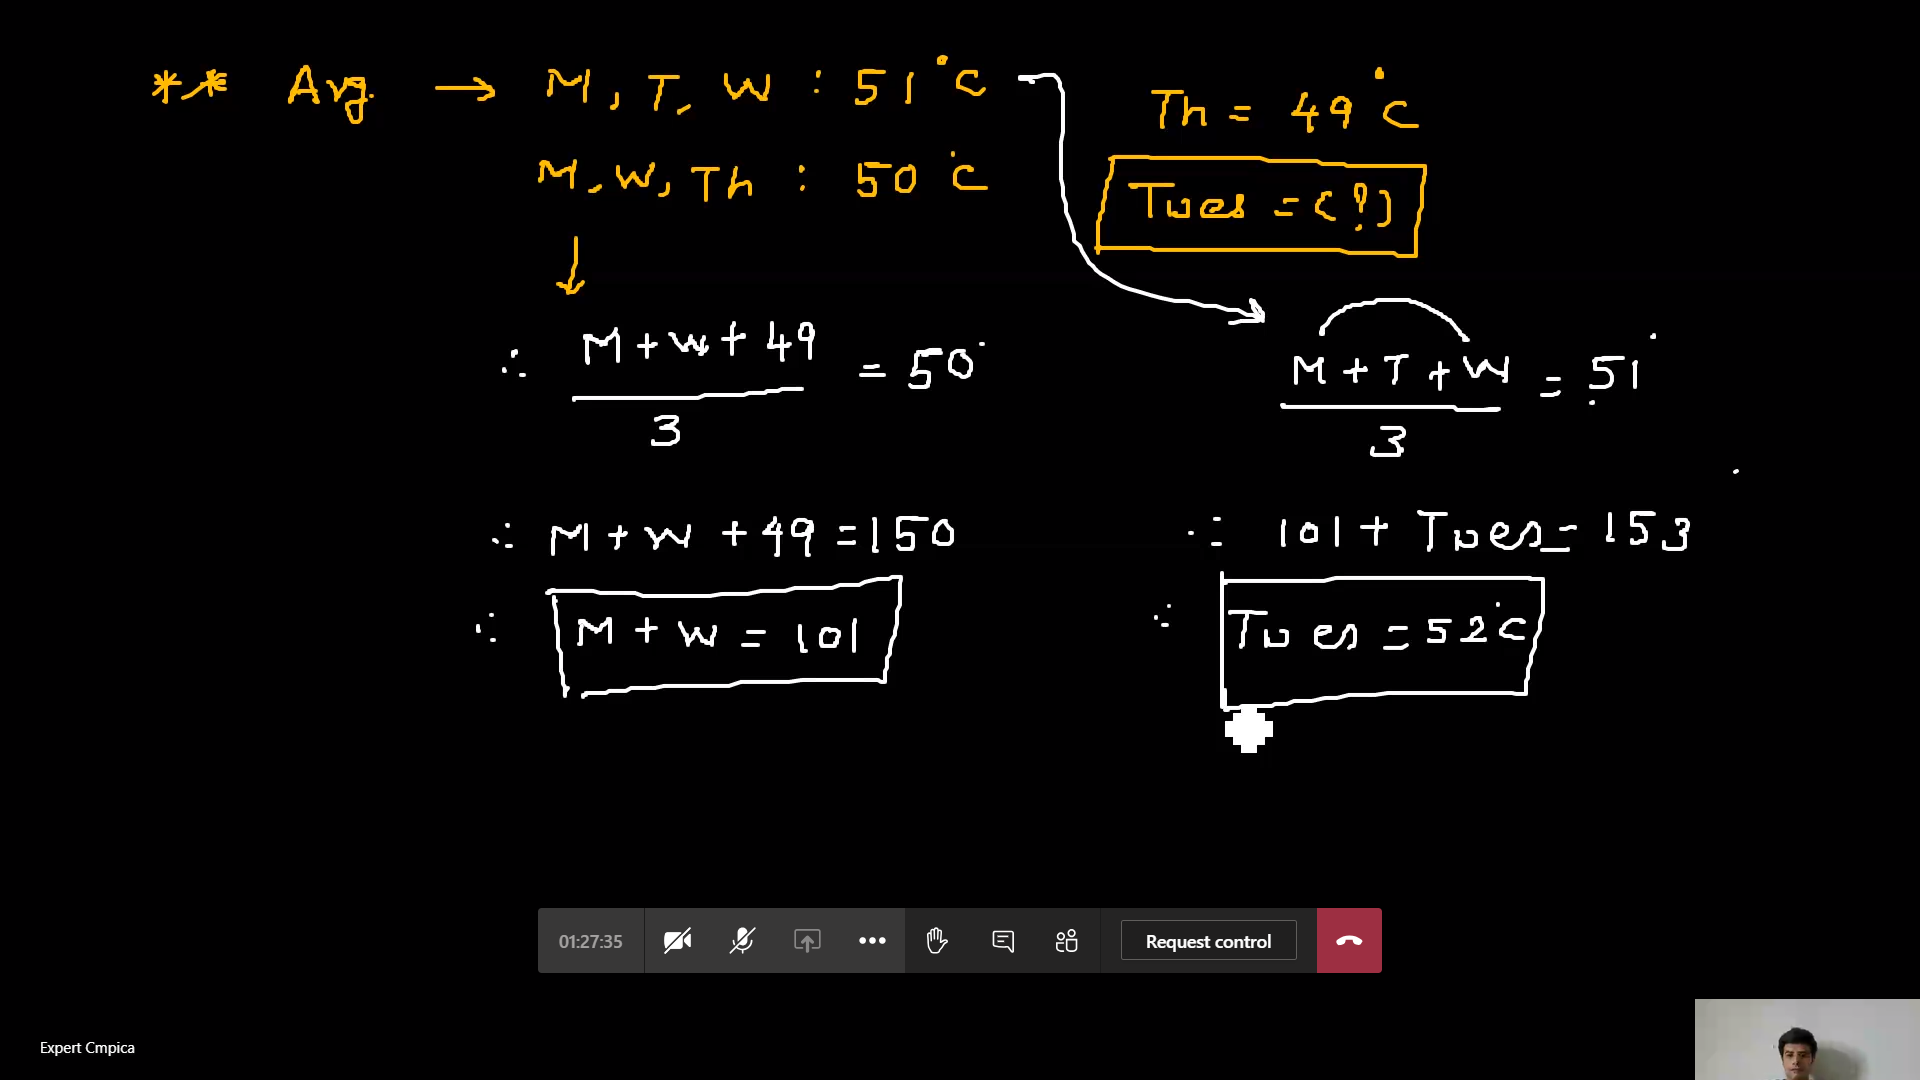 ** Avg. → M, T, W : 51°C
Th = 49°C
M, W, Th : 50°C
Tues = (?)
∴ M + W + 49 / 3 = 50°
M + T + W / 3 = 51°
∴ M + W + 49 = 150
∴ 101 + Tues = 153
∴ M + W = 101
∴ Tues = 52°C
01:27:35
Request control
Expert Cmpica